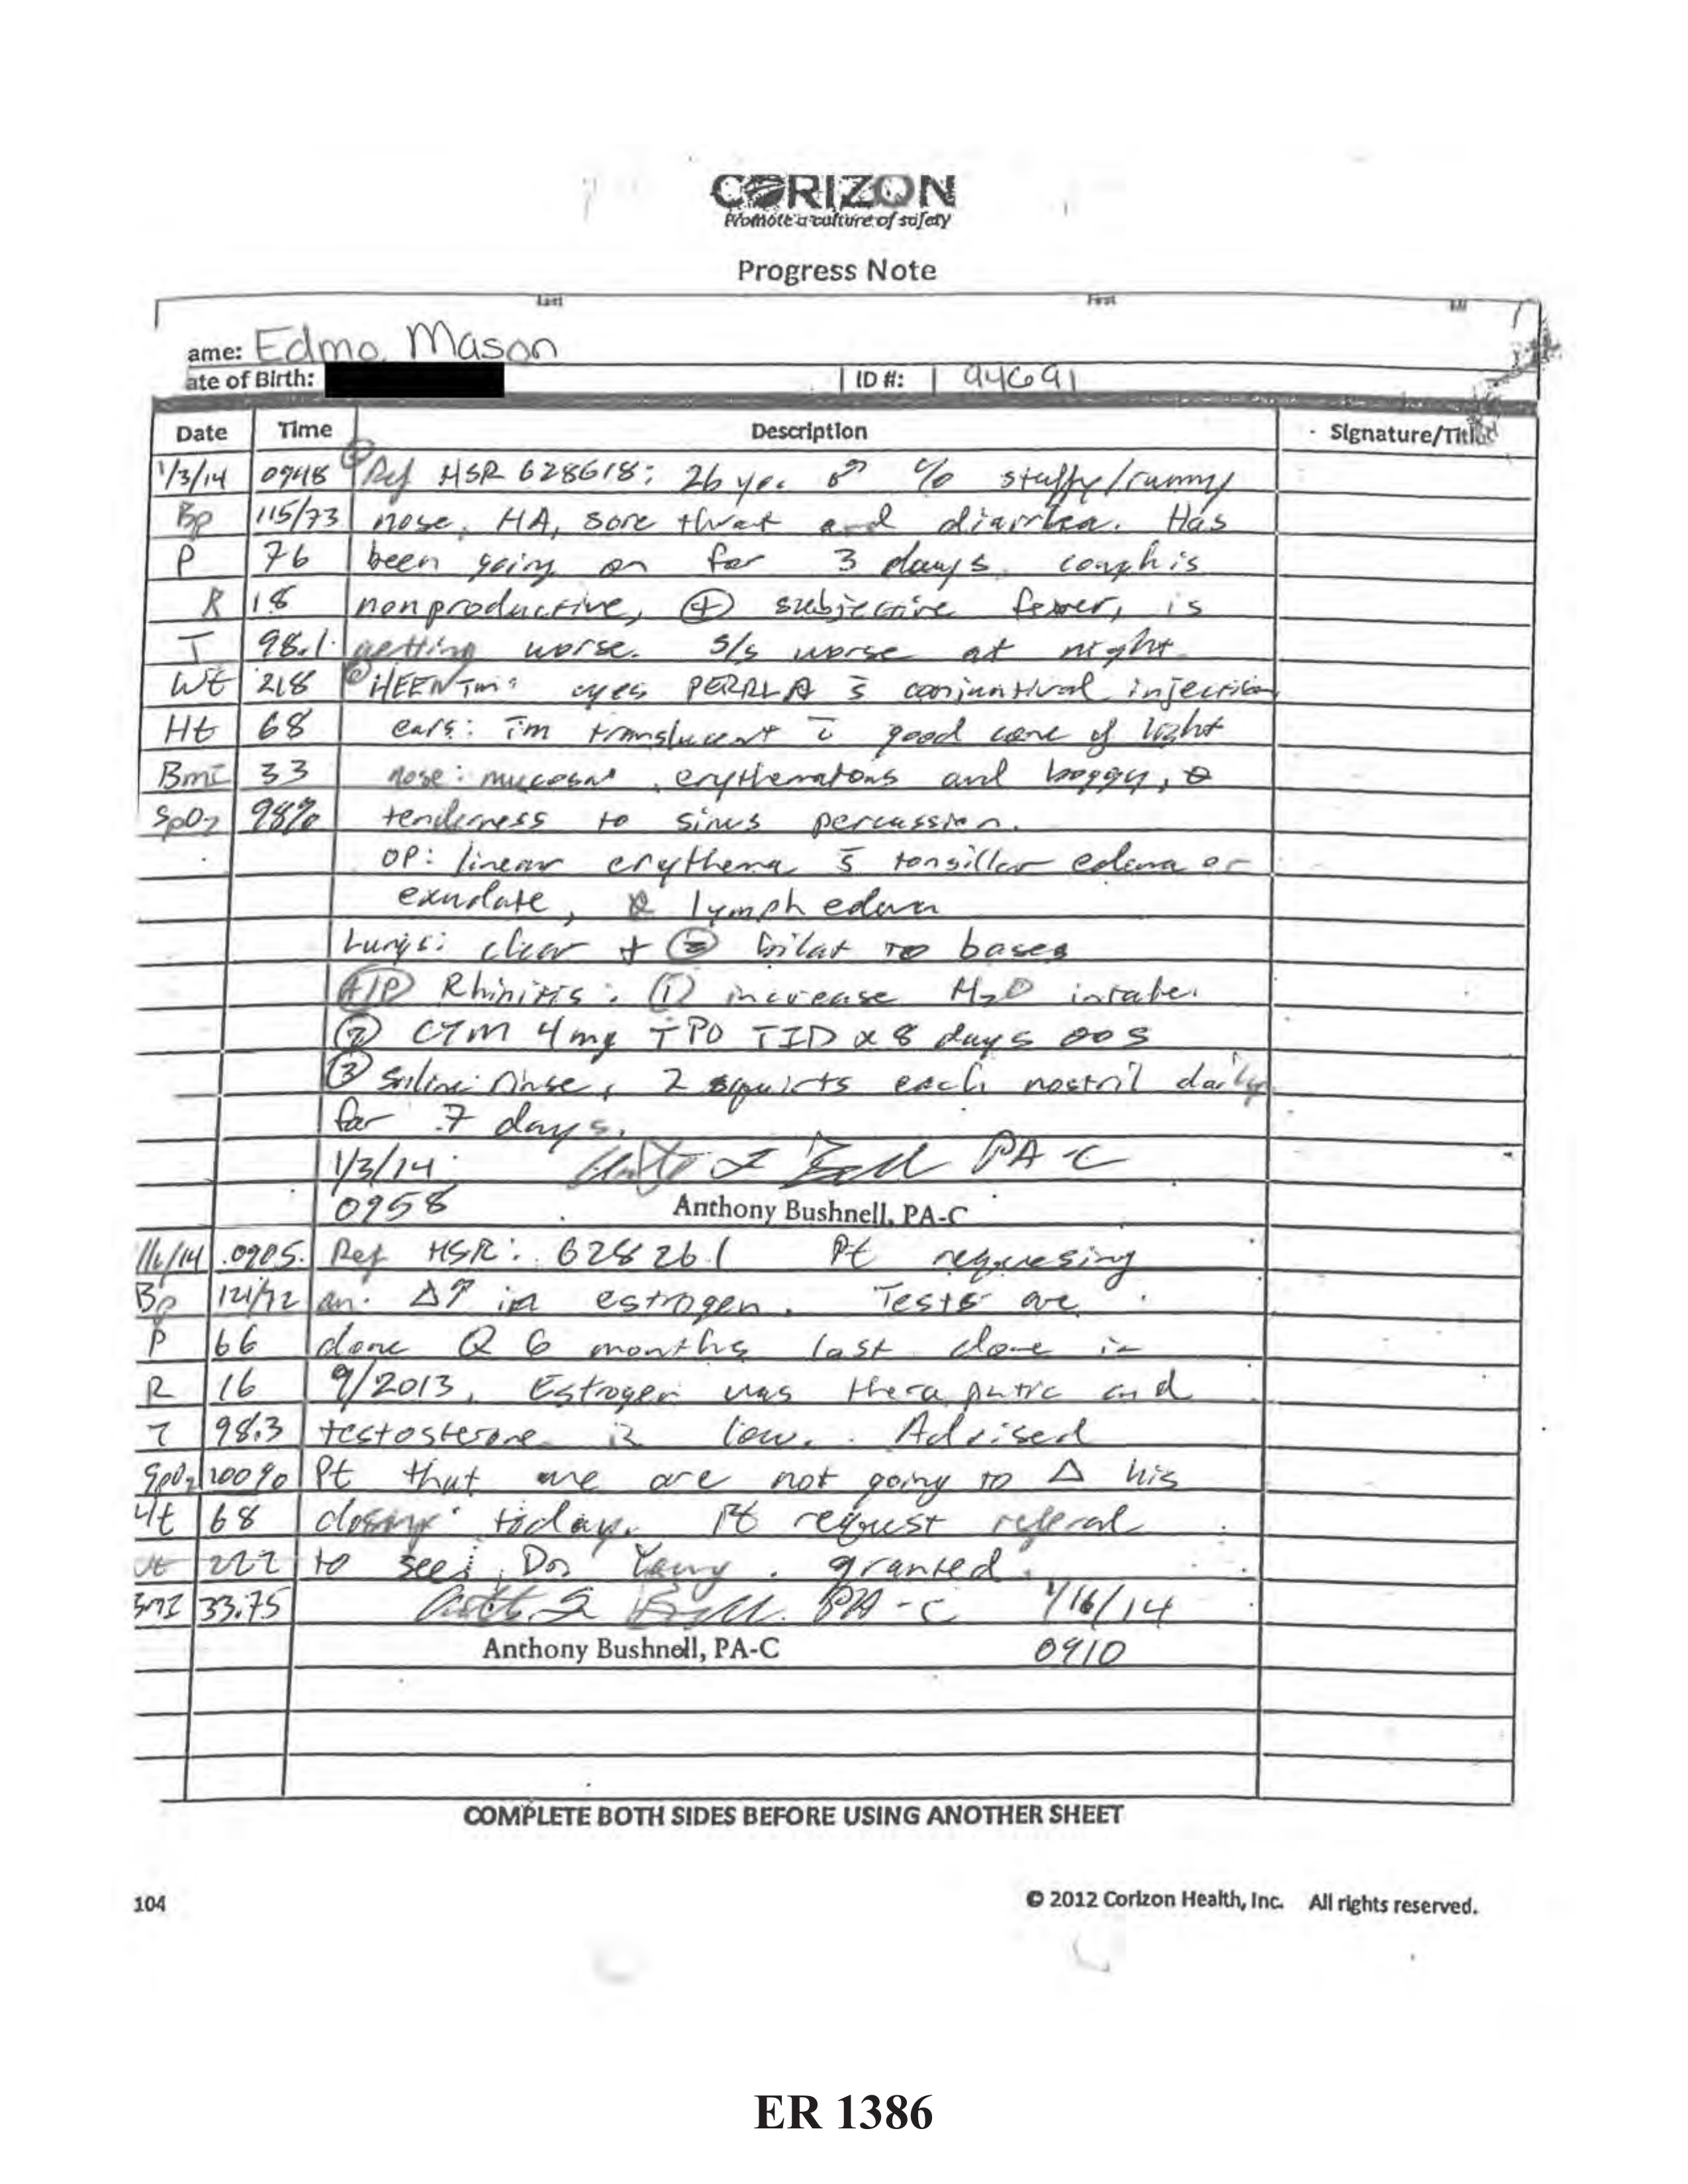 CORIZON
Promote a culture of safety
Progress Note
Last First MI
ame: Edmo, Mason
ate of Birth: ID #: 94691
Date Time Description Signature/Title
1/3/14 0948 Ref HSR 628618: 26 yo. ♂ c/o stuffy/runny
Bp 115/73 nose, HA, sore throat and diarrhea. Has
P 76 been going on for 3 days. cough is
R 18 nonproductive, ⊕ subjective fever, is
T 98.1 getting worse. S/s worse at night
Wt 218 HEENTm: eyes PERRLA s̄ conjuntival injection
Ht 68 ears: Tm translucent c̄ good cone of light
BmI 33 nose: mucosa erythematous and boggy, ⊖
SpO2 98% tenderness to sinus percussion.
OP: linear erythema s̄ tonsillar edema or
exudate, lymph edema
Lungs: clear + ⊜ bilat to bases
A/P Rhinitis: ① increase H2O intake.
② CTM 4mg T PO TID x 8 days
③ saline rinse, 2 squirts each nostril daily
for 7 days.
1/3/14 PA-C
0958 Anthony Bushnell, PA-C
1/16/14 0905 Ref HSR: 628261 Pt requesing
Bp 121/72 an Δ↑ in estrogen. Tests are
P 66 done Q 6 months last done in
R 16 9/2013. Estrogen was theraputic and
T 98.3 testosterone is low. Advised
SpO2 100% Pt that we are not going to Δ his
Ht 68 dosing today. Pt request referal
wt 222 to see Dr. granted.
BMI 33.75 PA-C 1/16/14
Anthony Bushnell, PA-C 0910
COMPLETE BOTH SIDES BEFORE USING ANOTHER SHEET
104 © 2012 Corizon Health, Inc. All rights reserved.
ER 1386